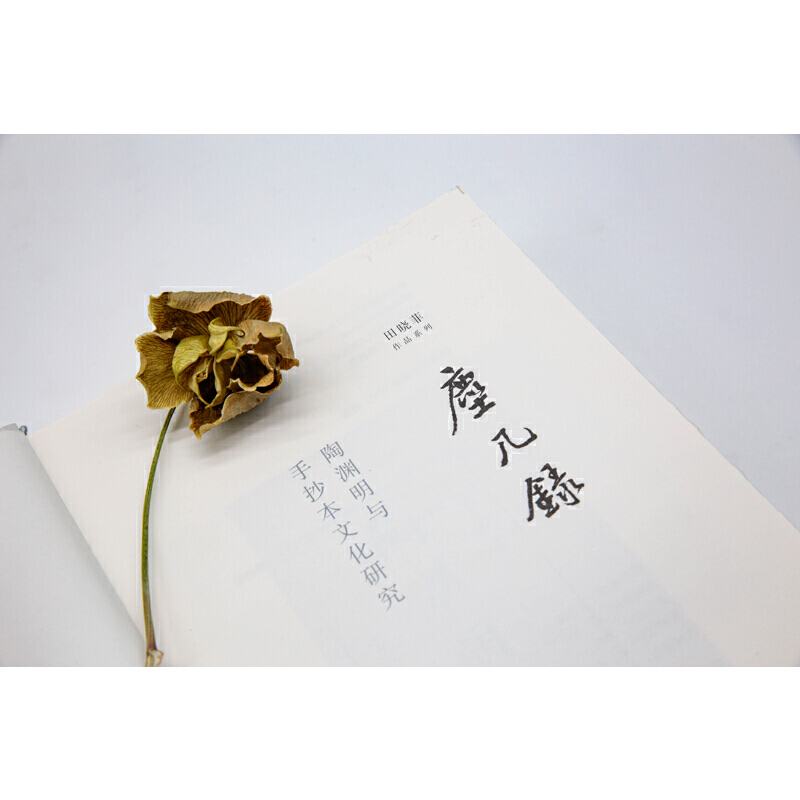 田晓菲
作品系列
塵几錄
陶渊明与
手抄本文化研究